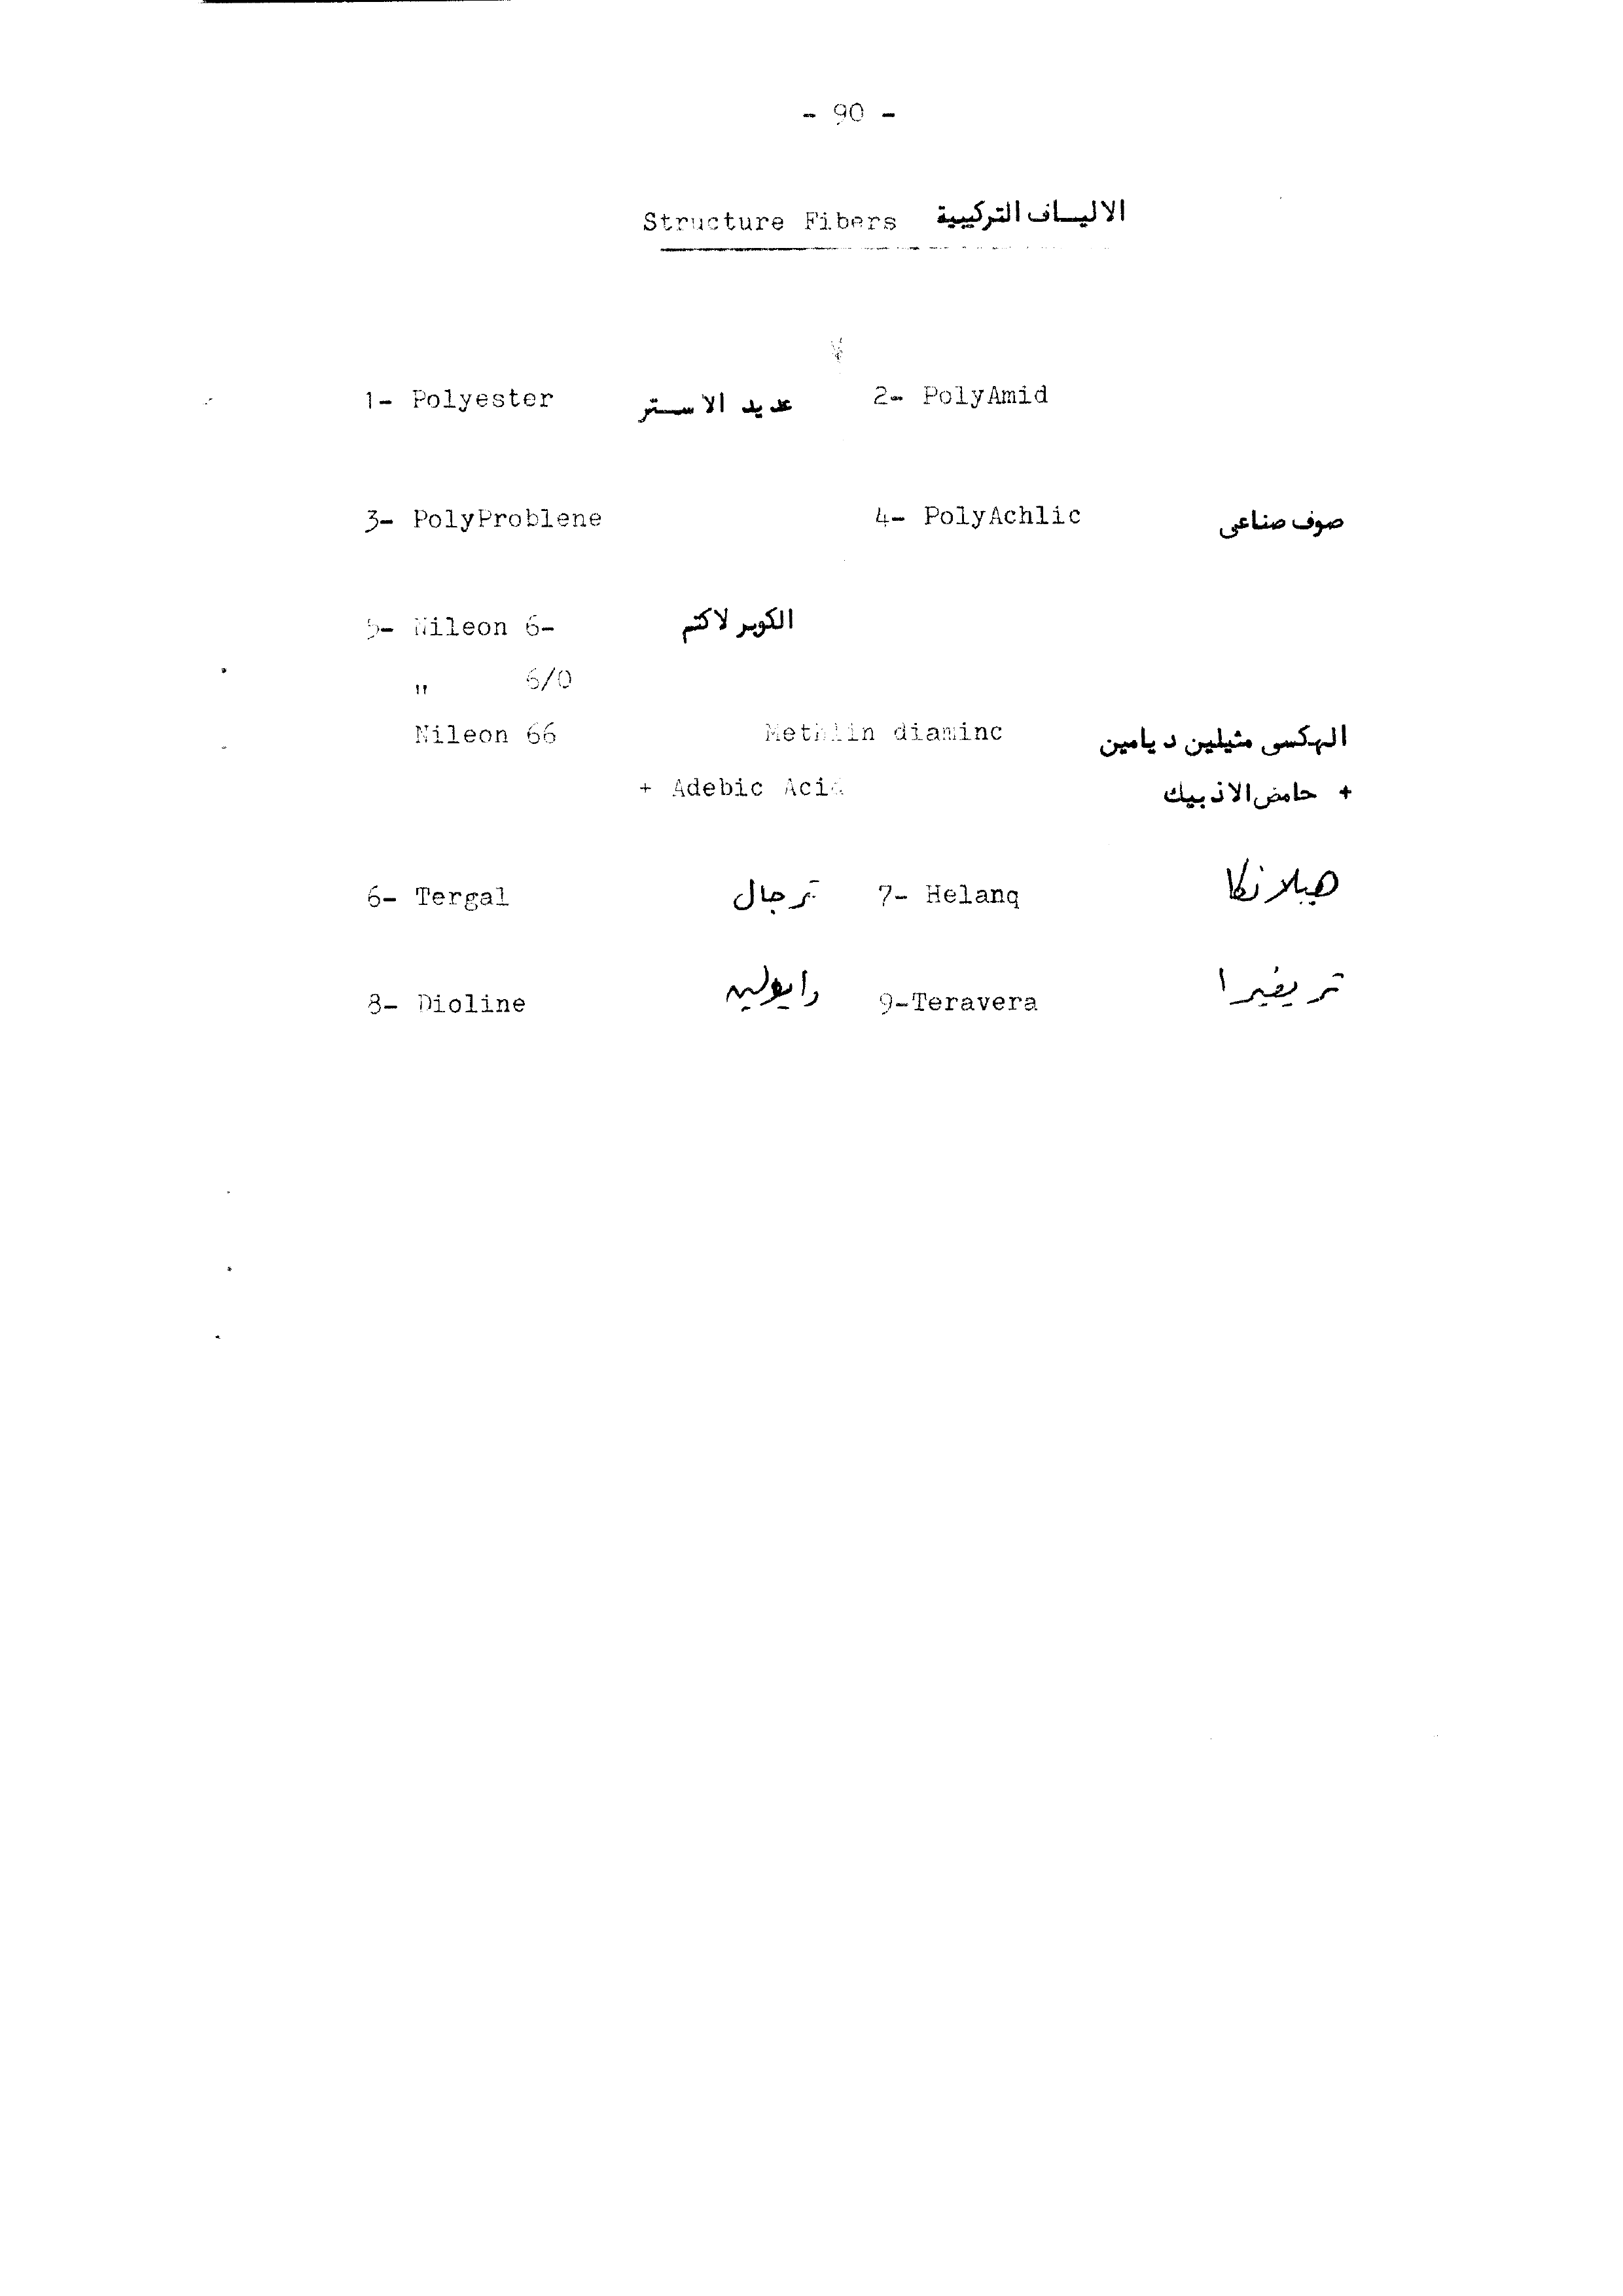 - 90 -
Structure Fibers الاليـاف التركيبية
1- Polyester عديد الاستر 2- PolyAmid
3- PolyProblene 4- PolyAchlic صوف صناعى
5- Nileon 6- الكوبر لاكتم
" 6/0
Nileon 66 Methlin diaminc الهكسى مثيلين ديامين
+ Adebic Acid + حامض الاذبيك
6- Tergal ترجال 7- Helanq هيلانكا
8- Dioline دايولين 9-Teravera تريفيرا